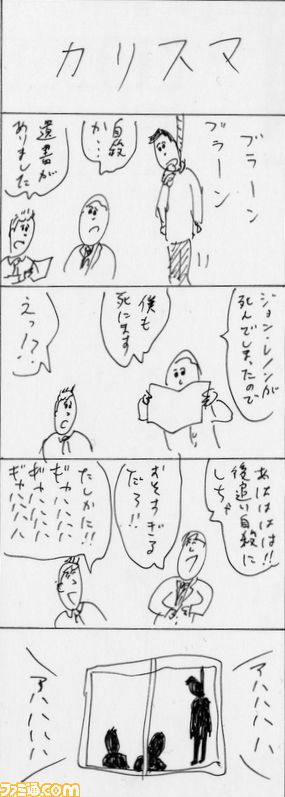 カリスマ
ブラーン
ブラーン
自殺
か…
遺書が
ありました
ジョン・レノンが
死んでしまったので
僕も
死にます
えっ!?
あはははは!!
後追い自殺に
しちゃ
おそすぎる
だろ!!
たしかに!!
ギャハハハハ
ギャハハハハ
ギャハハハハ
アハハハハ
アハハハハ
ファミ通.com